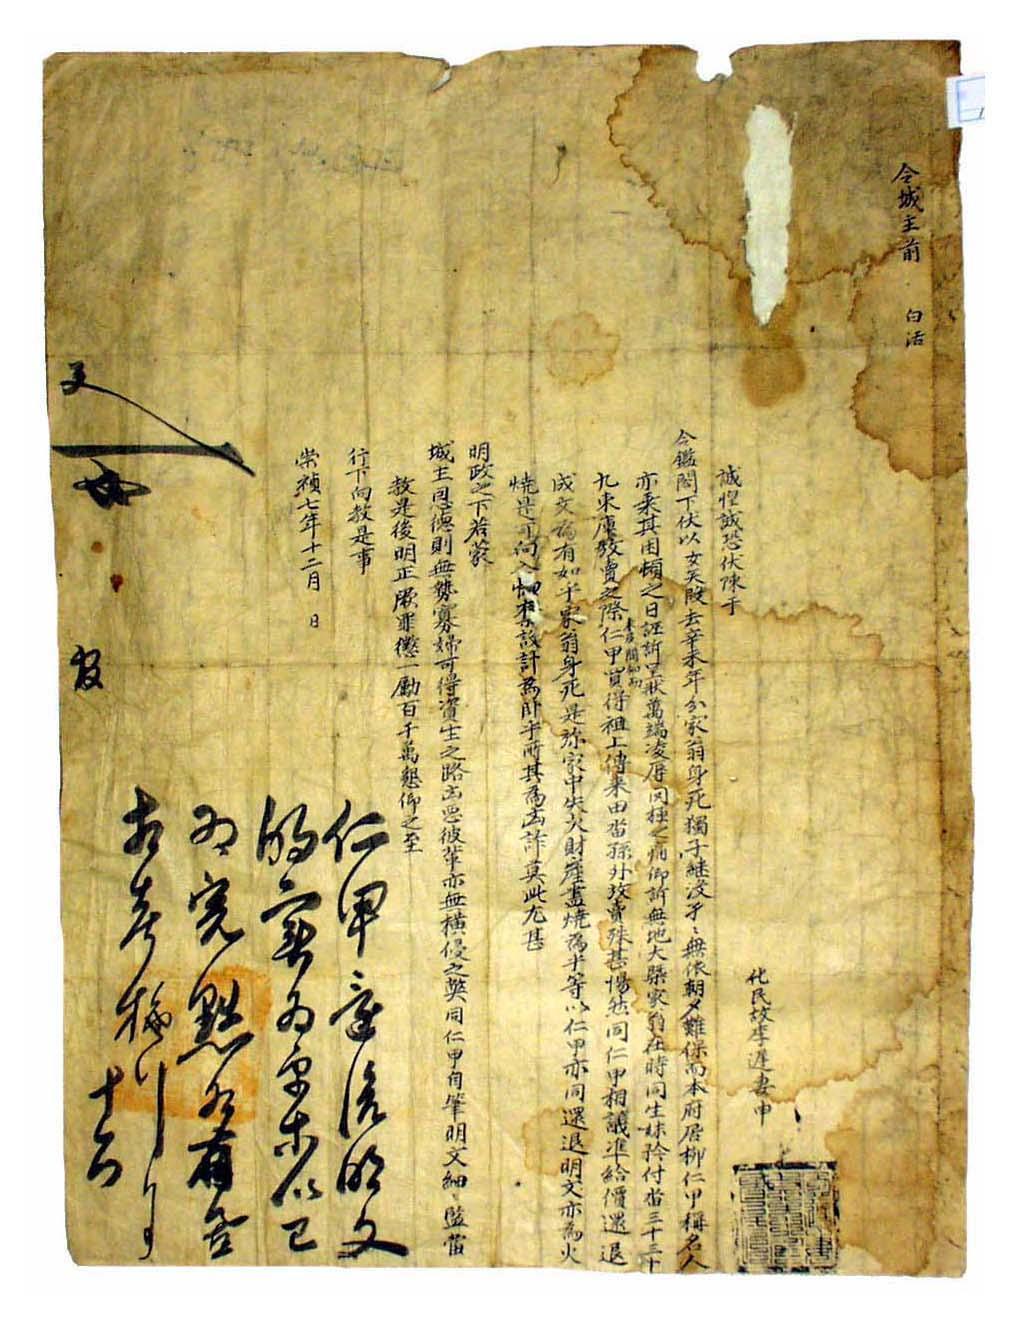 令城主前 白活
化民故李遲妻申
誠惶誠恐伏陳于
令鑑閤下伏以女矣段去辛未年分家翁身死獨子継没孑〻無依朝夕難保而本府居柳仁甲稱名人
亦乘其困頓之日誣訴呈狀萬端凌辱罔極之痛仰訴無地大槩家翁在時同生妹矜付畓三十三卜
九束庫放賣之際仁甲買得祖上傳来田畓孫外放賣殊甚惕然同仁甲相議准給價還退
成文為有如乎家翁身死是旀家中失火財産盡燒為乎等以仁甲亦同還退明文亦為火
燒是可向入設計為所其為凶詐莫此尤甚
明政之下若蒙
城主恩德則無勢寡婦可得資生之路凶惡彼輩亦無横侵之獘同仁甲自筆明文細〻監當
教是後明正厥罪懲一勵百千萬懇仰之至
行下向教是事
崇禎七年十二月 日
仁甲還退明文
的實為 以己
為完 為有
相考施行
十六